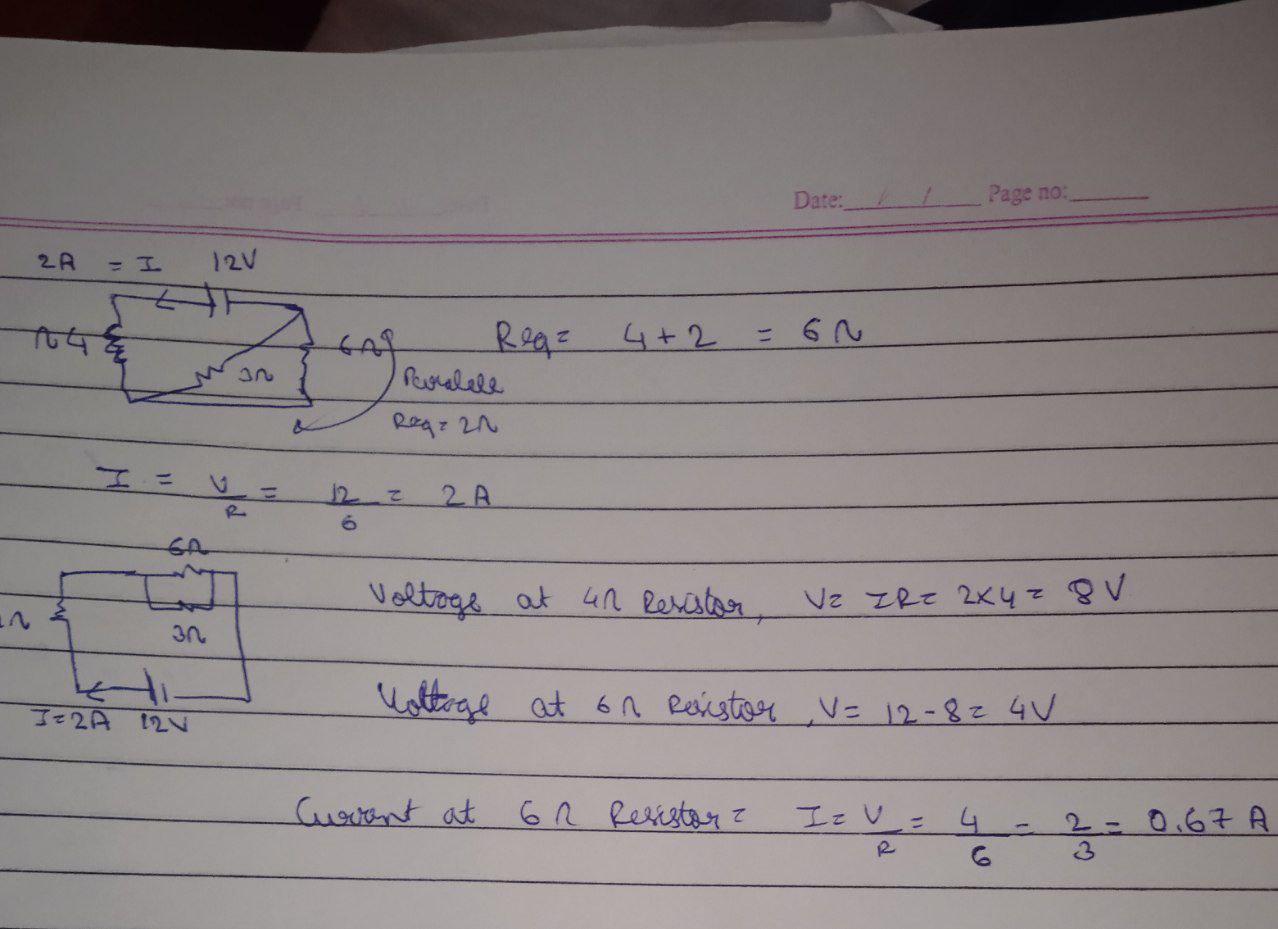 Date: / / Page no:
2A = I 12V
Ω 4
6Ω
3Ω
Req = 4+2 = 6Ω
Req = 2Ω
I = V/R = 12/6 = 2A
6Ω
3Ω
I=2A 12V
Voltage at 4Ω Resistor, V= IR= 2×4= 8V
Voltage at 6Ω Resistor, V= 12-8= 4V
Current at 6Ω Resistor= I= V/R = 4/6 = 2/3 = 0.67 A